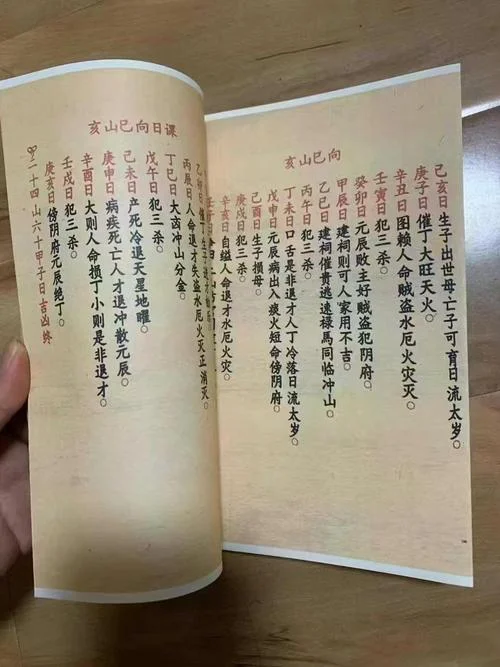 亥山巳向
己亥日生子出世母亡子可育日流太岁。
庚子日催丁大旺天火。
辛丑日图赖人命贼盗水厄火灾灭。
壬寅日犯三杀。
癸卯日元辰败主好贼盗犯阴府。
甲辰日建祠则可人家用不吉。
乙巳日建祠催贵逃遠禄馬同临冲山。
丙午日犯三杀。
丁未日口舌是非退才人丁冷落日流太岁。
戊申日元辰病出入痰火短命傍阴府。
己酉日生子损母。
庚戌日犯三杀。
辛亥日自缢人命退才水厄火灾。
亥山巳向日课
丙辰日人命退才失盗水厄火灭正消灭。
丁巳日大凶冲山分金。
戊午日犯三杀。
己未日产死冷退天星地曜。
庚申日病疾死亡人才退冲散元辰。
辛酉日大则人命损丁小则是非退才。
壬戌日犯三杀。
庚亥日傍阴府元辰绝丁。
二十四山六十甲子日吉凶终